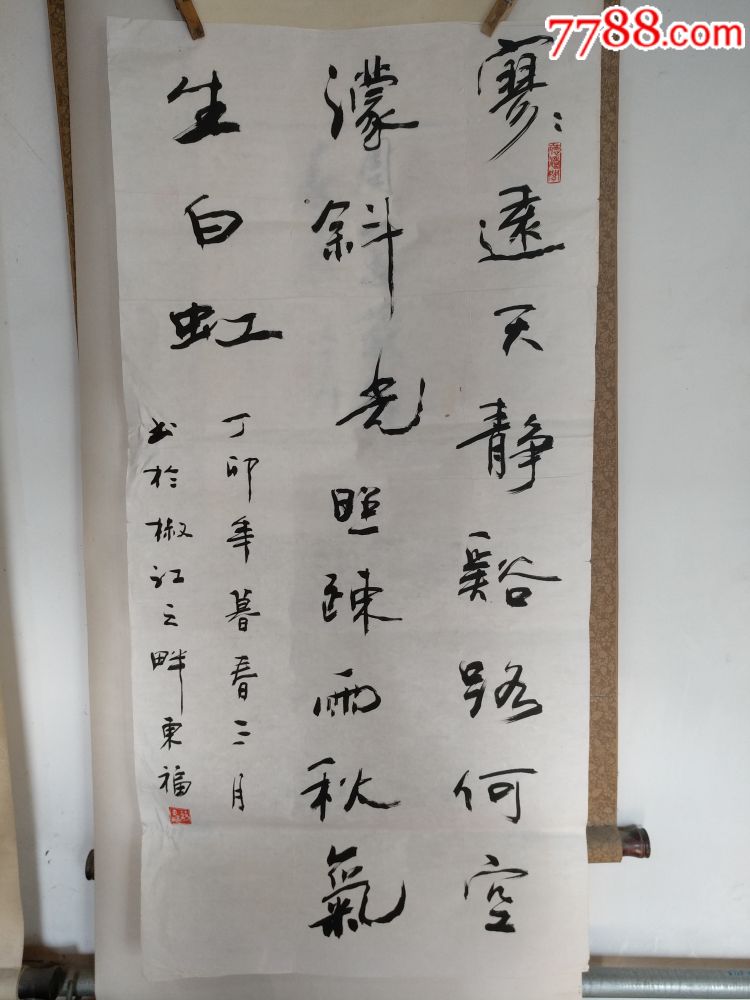 7788.com
寥々遠天静谿路何空
濛斜光照疎雨秋氣
生白虹
丁卯年暮春三月
书於椒江之畔東福